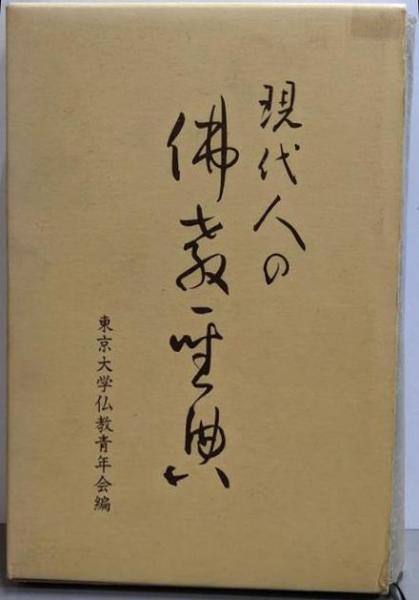 現代人の
佛教聖典
東京大学仏教青年会編